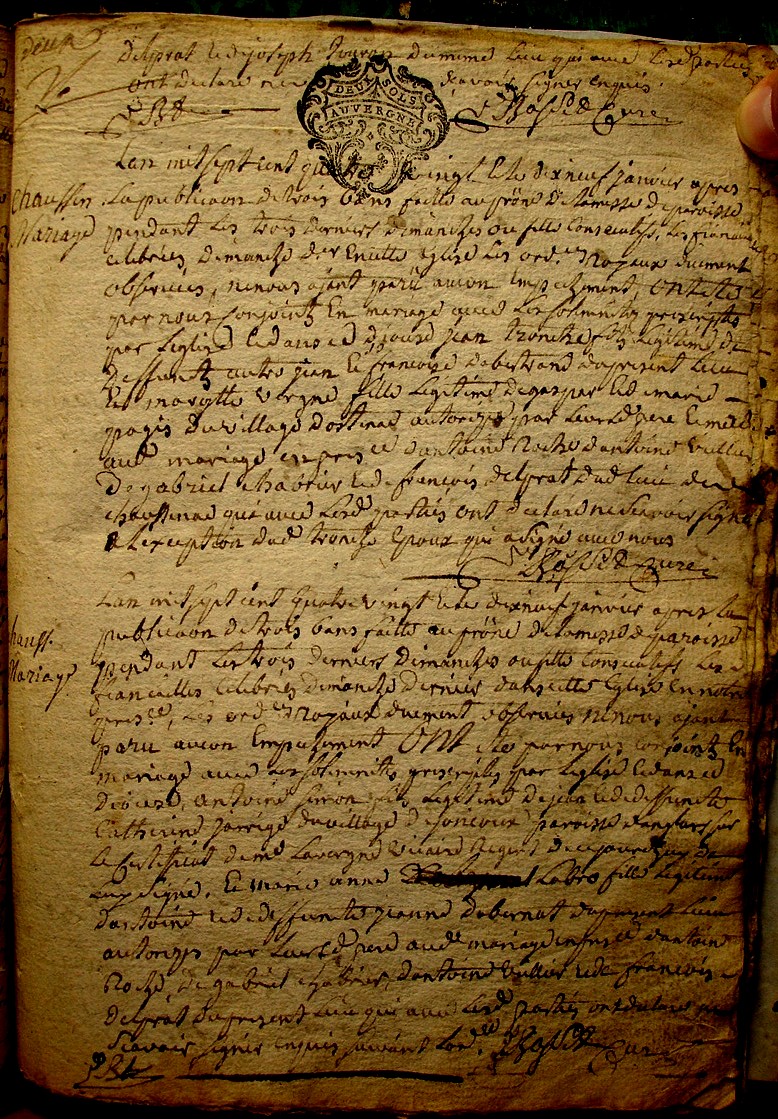 deux
delprat et de joseph du meme lieu qui avec lesd. parties
ont declaré ne scavoir signer enquis.
DEUX SOLS
AUVERGNE
Rossid Curé
Chaussen.
Mariage
L'an mil sept cent quatre vingt et le dixneuf janvier apres
La publicaon de trois bans faitte au prône de la messe de paroisse
pendant les trois derniers dimanches ou fette consecutifs, les fiancailles
celebrées dimanche der en cette Eglise Les ord.ces Royaux duement
observées, ne nous ayant paru aucun Empechement, ont eté
par nous Conjoints En mariage avec les solemnités prescriptes
par L'eglise et dans ce diocese jean tronche fils Legitime de
deffunts autre jean et francoise dabertrand du present Lieu
Et margitte vergne fille Legitime de gaspar et de marie
pagis du village d'ostenac autorizés par leursd. pere et mere
aud. mariage en pres.ce d'antoine Roche d'antoine vullier
De gabriel chabrier et de francois delprat dud. lieu de
chaussenac que avec lesd. parties ont declaré ne scavoir signer
a L'exception dud. tronche Epoux qui a signé avec nous
Rossid Curé
Chauss.
Mariage
L'an mil sept cent quatre vingt et le dixneuf janvier apres la
publicaon de trois bans faitte au prône de la messe de paroisse
pendant les trois derniers dimanches ou fette Consecutifs, les
fiancailles celebrées dimanche dernier dans cette Eglise En notre
pres.ce, Les ord.ces Royaux duement observées ne nous ayant
paru aucun Empechement ont eté par nous conjoints En
mariage avec les solemnités prescriptes par L'eglise et dans ce
diocese, antoine simon fils Legitime de jean et de deffunte
Catherine jarrige du village de paroisse d'anglars sur
le Certificat de mr Lavergne vicaire Regent de ce jourd'huy de
Luy signé. Et marie anne Labro fille Legitime
d'antoine et de deffunte jeanne dabernat du present Lieu
autorizés par Leursd. pere aud. mariage en pres.ce d'antoine
Roche, de gabriel chabrier, d'antoine vullier et de francois
delprat du present Lieu qui avec lesd. parties ont declaré ne
scavoir signer enquis suivant L'ord.ce Rossid Curé